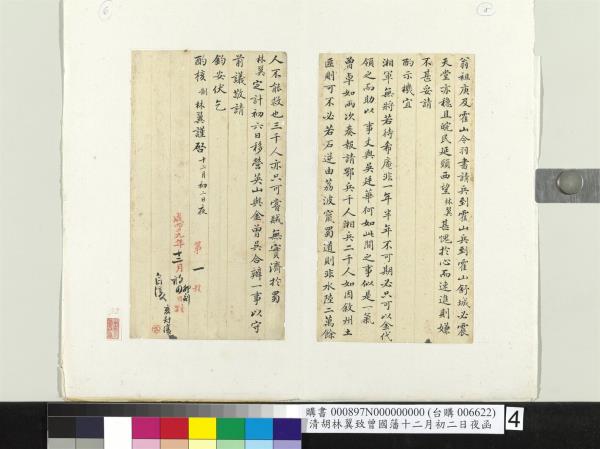 翁祖庚及霍山令羽書請兵到霍山兵到霍山舒城必震
天堂亦穩且皖民延頸西望林翼甚愧於心而速進則嫌
不甚妥請
酌示機宜
湘軍無將若待希庵非一年半年不可期必只可以金代
領之而助以事丈與吳廷華何如此間之事似是一氣
曾章如兩次奏報請鄂兵千人湘兵二千人如因敘州土
匪則可不必若石逆由荔波竄蜀道則非水陸二萬餘
人不能救也三千人亦只可嘗賊無實濟於蜀
林翼定計初六日移營英山與金曾吳合辦一事以守
前議敬請
鈞安伏乞
酌核制林翼謹啓十二月初二日夜
第一
咸豐九年十二月初四
6
5
購書 000897N000000000 (台購 006622)
清胡林翼致曾國藩十二月初二日夜函
4